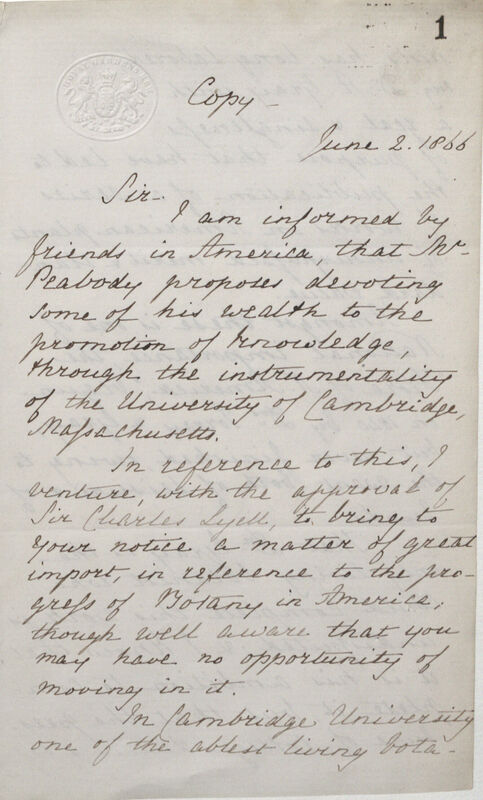 1
Copy –
June 2. 1866
Sir.
I am informed by
friends in America, that Mr
Peabody proposes devoting
some of his wealth to the
promotion of knowledge,
through the instrumentality
of the University of Cambridge,
Massachusetts.
In reference to this, I
venture, with the approval of
Sir Charles Lyell, to bring to
your notice a matter of great
import, in reference to the pro-
gress of Botany in America;
though well aware that you
may have no opportunity of
moving in it.
In Cambridge University
one of the ablest living bota-